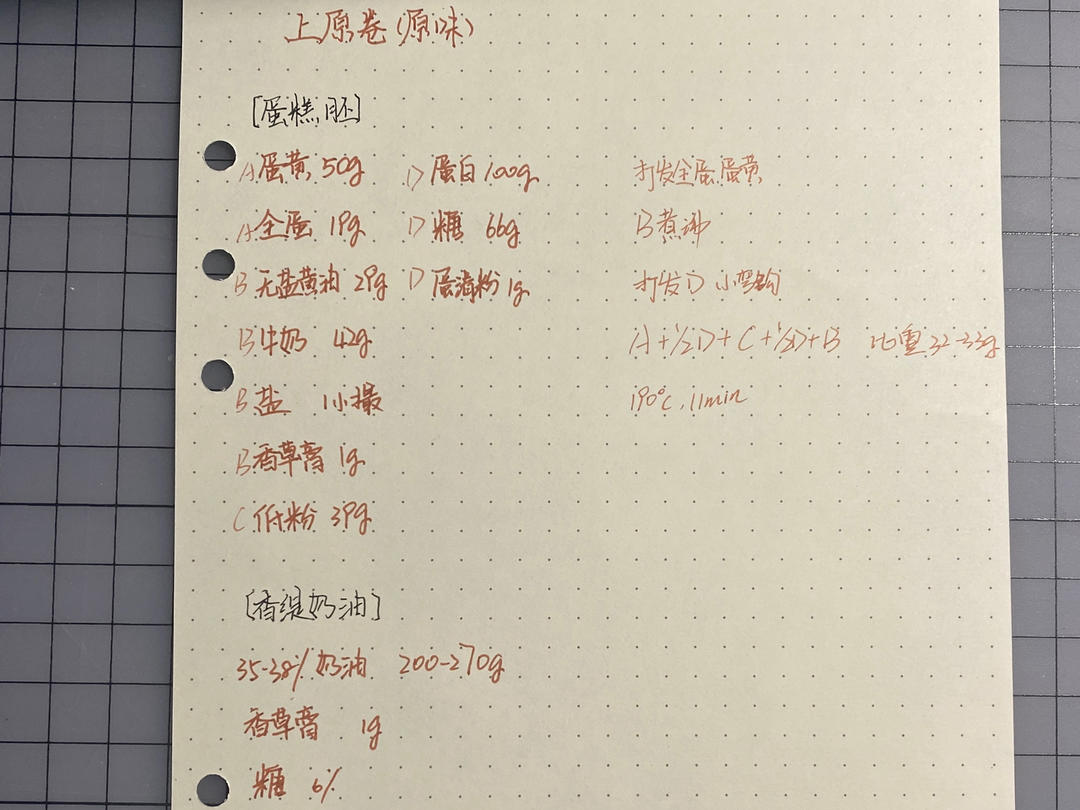 上原卷(原味)
[蛋糕胚]
A 蛋黄 50g D 蛋白 100g 打发全蛋蛋黄
A 全蛋 19g D 糖 66g B煮沸
B 无盐黄油 29g D 蛋清粉 1g 打发D 小弯钩
B 牛奶 42g A+1/2D+C+1/2D+B 比重32-33g
B 盐 1小撮 190℃,11min
B 香草膏 1g
C 低粉 39g
[香缇奶油]
35-38%奶油 200-270g
香草膏 1g
糖 6%